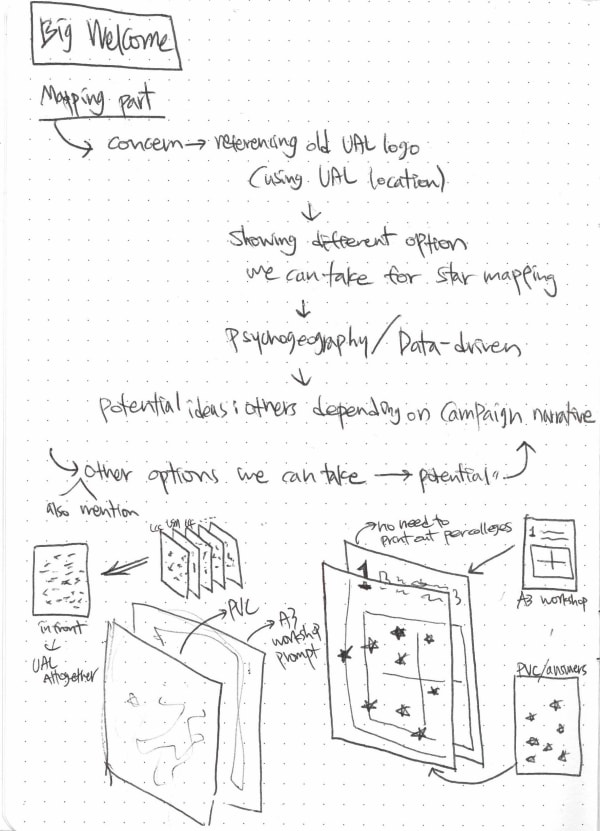 Big Welcome
Mapping part
concern → referencing old UAL logo
(using UAL location)
showing different option
we can take for star mapping
psychogeography / Data-driven
potential ideas : others depending on campaign narrative
other options we can take → potential
also mention
in front
UAL
Altogether
PVC
A3
workshop
prompt
no need to
print out per colleges
1
A3 workshop
1
PVC/answers